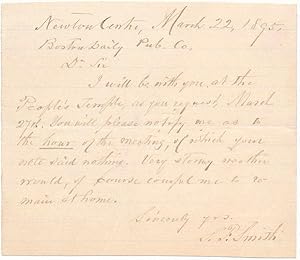 Newton Centre, March 22, 1895,
Boston Daily Pub. Co.
Dr Sir
I will be with you, at the
People's Temple, as you request, March
27th. You will please notify me as to
the hour of the meeting, of which your
note said nothing. Very stormy weather
would, of course compel me to re-
main at home.
Sincerely yrs.
Smith